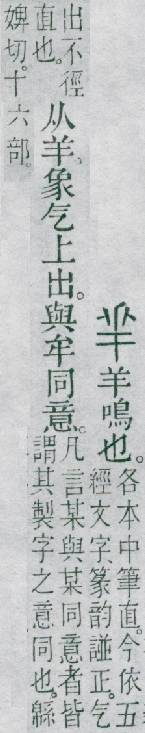 羋
羊鳴也。
各本中筆直。今依五
經文字篆韵譜正。气
出不徑
直也。
从羊。象气上出。與牟同意。
凡言某與某同意者皆
謂其製字之意同也。緜
婢切。十六部。